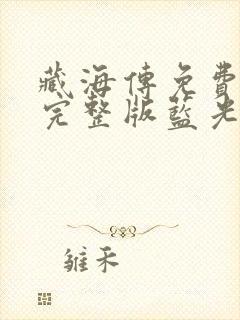 藏海傳免費
完整版藍光
雏禾